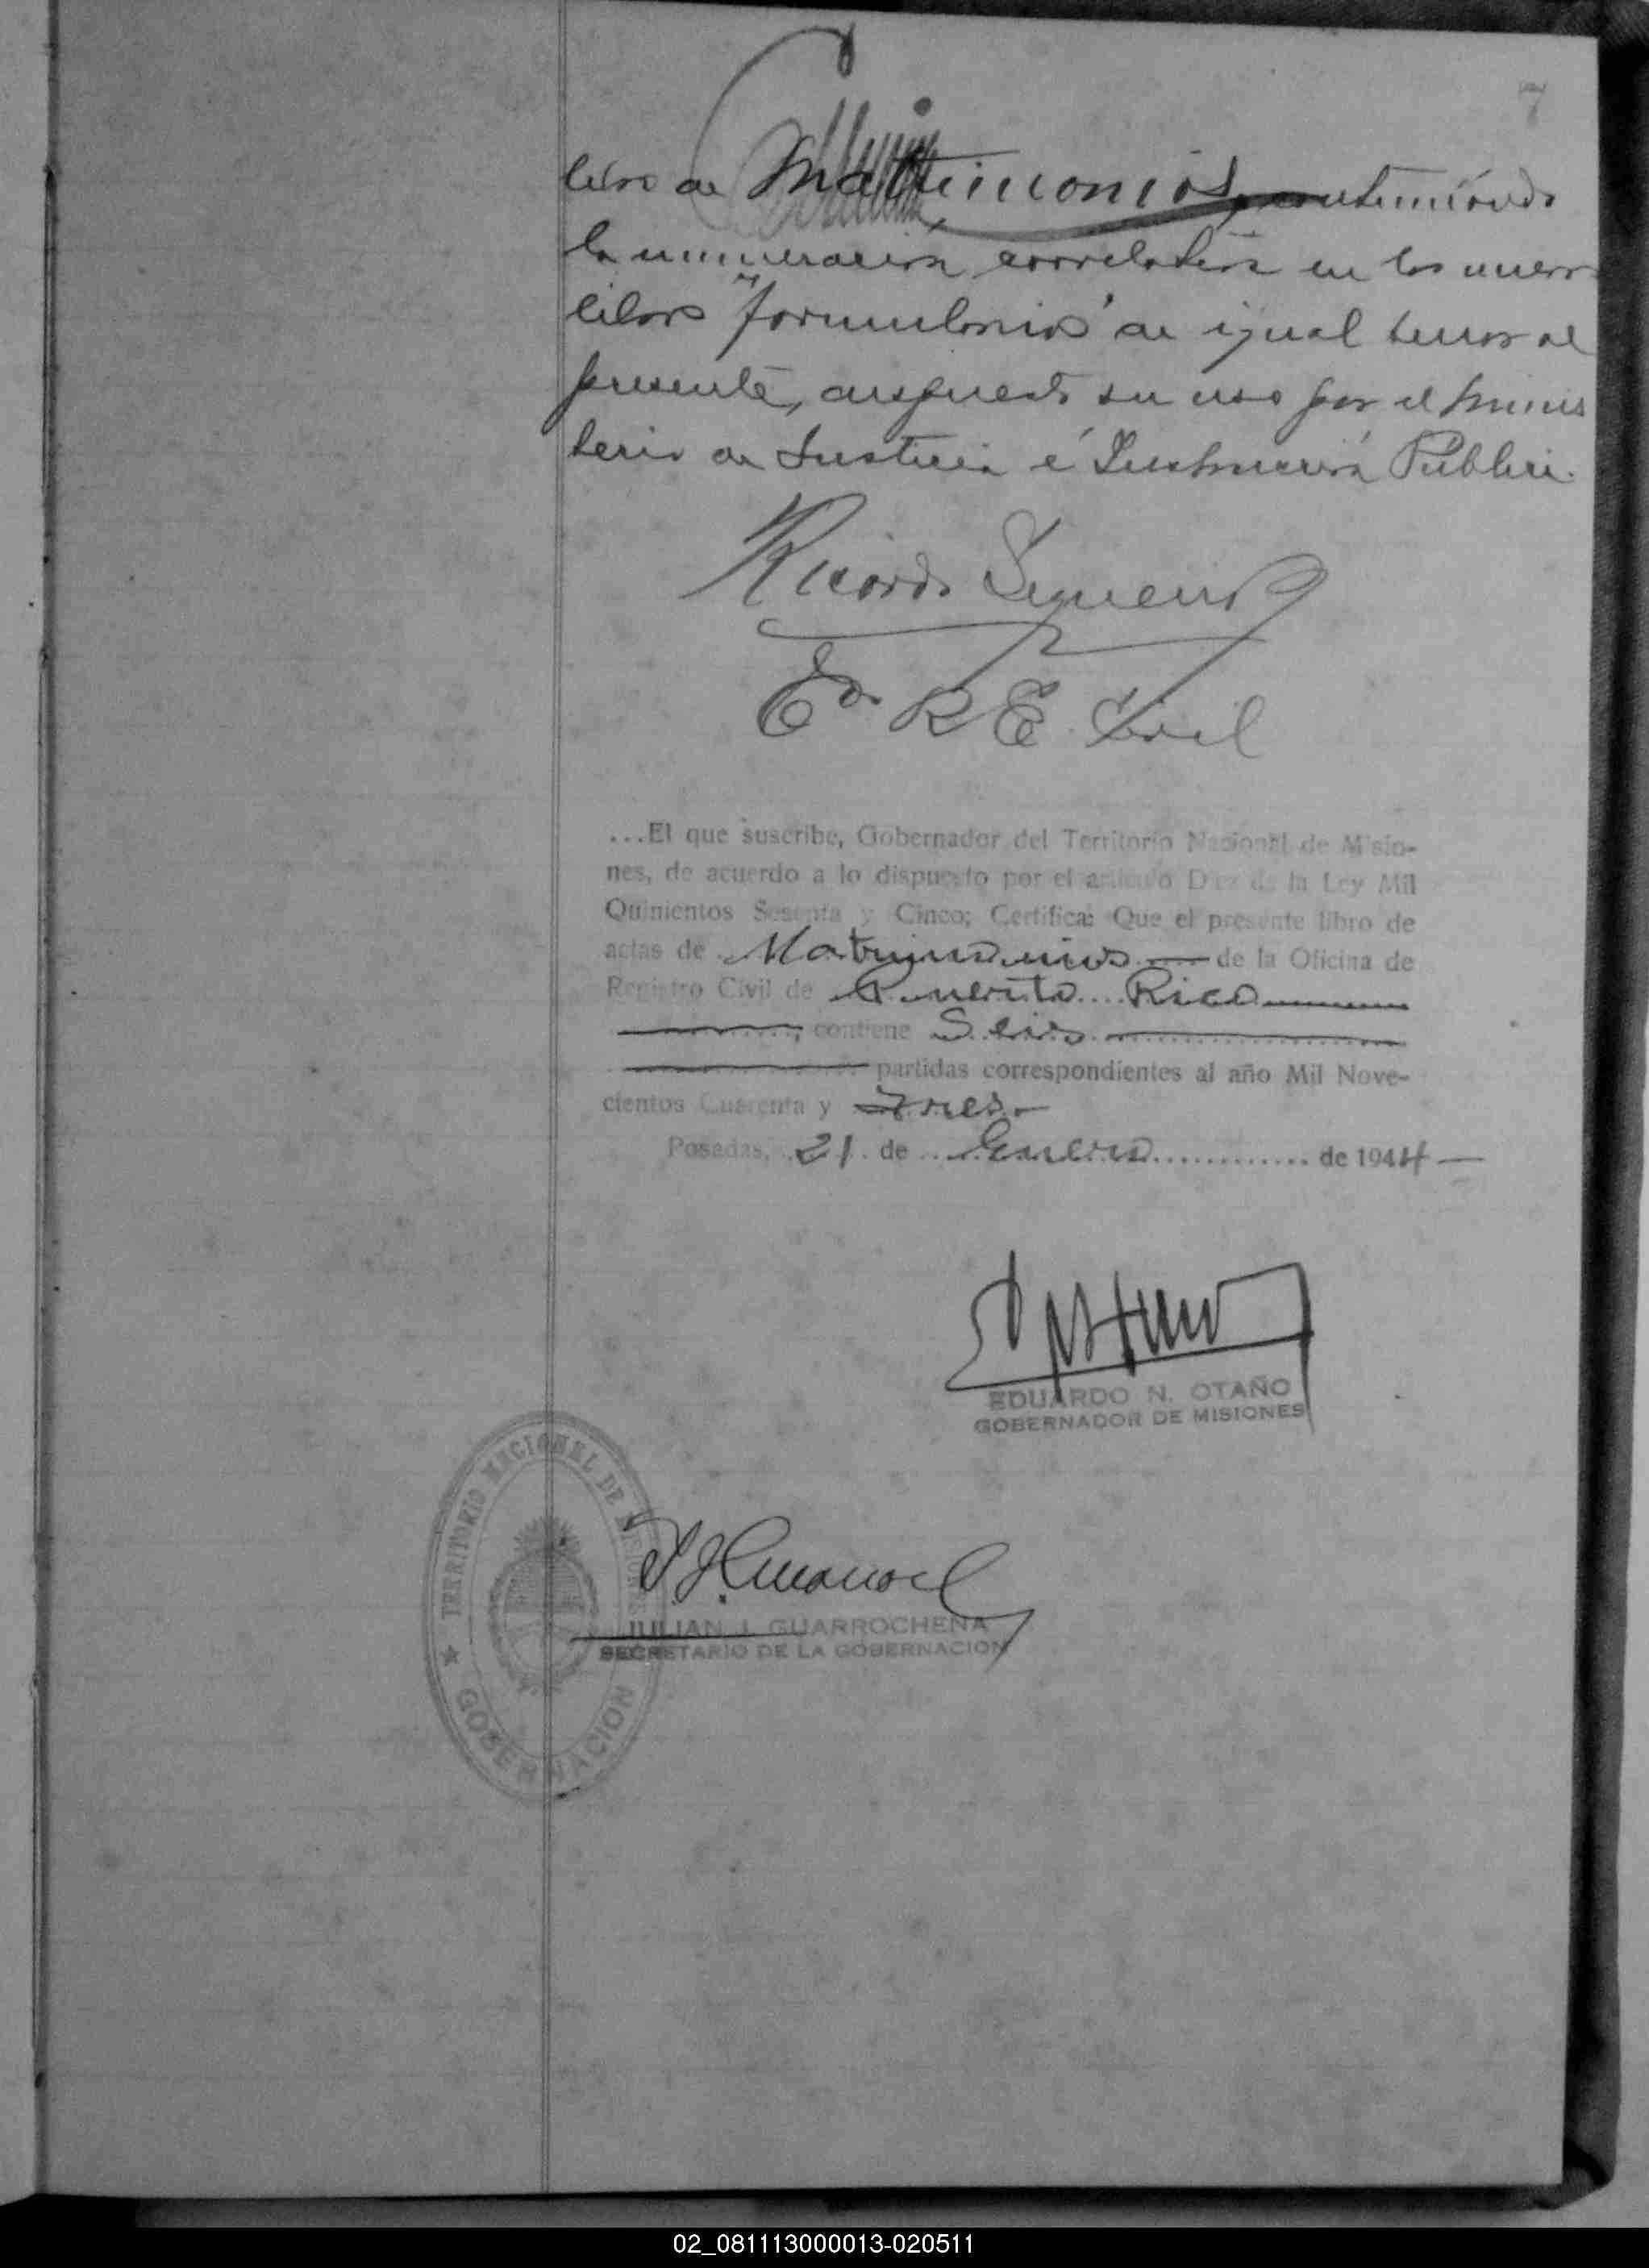 7
libro de Matrimonios, continuándo
la numeración correlativa en los nuevos
libros "formularios" de igual tenor al
presente, dispuesto su uso por el Minis
terio de Justicia é Instrucción Públic.
Ricardo
Edo. R. E. Civil
...El que suscribe, Gobernador del Territorio Nacional de Misio-
nes, de acuerdo a lo dispuesto por el artículo Diez de la Ley Mil
Quinientos Sesenta y Cinco; Certifica: Que el presente libro de
actas de Matrimonios de la Oficina de
Registro Civil de Puerto Rico
, contiene Seis
partidas correspondientes al año Mil Nove-
cientos Cuarenta y Tres
Posadas, 21 de Enero de 1944
EDUARDO N. OTAÑO
GOBERNADOR DE MISIONES
TERRITORIO NACIONAL DE MISIONES
JULIAN J. GUARROCHENA
SECRETARIO DE LA GOBERNACION
GOBERNACION
02_081113000013-020511